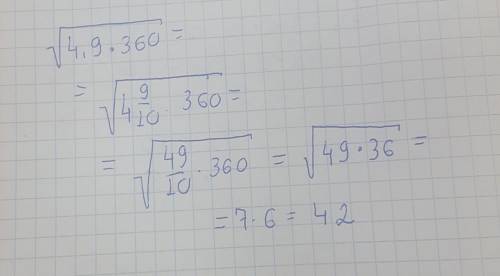 √4,9·360 =
= √4 9/10 · 360 =
= √49/10 · 360 = √49·36 =
= 7·6 = 42